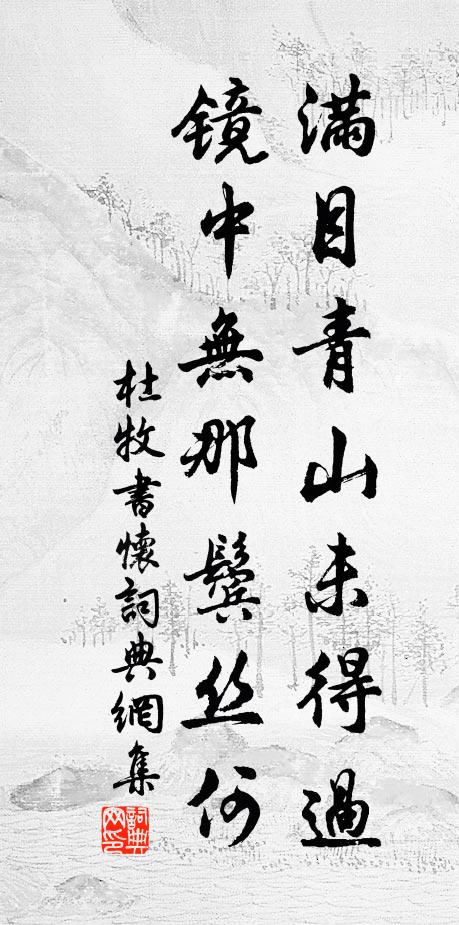 滿目青山未得過
鏡中無那鬢丝何
杜牧書懷詞典網集
詞典网印